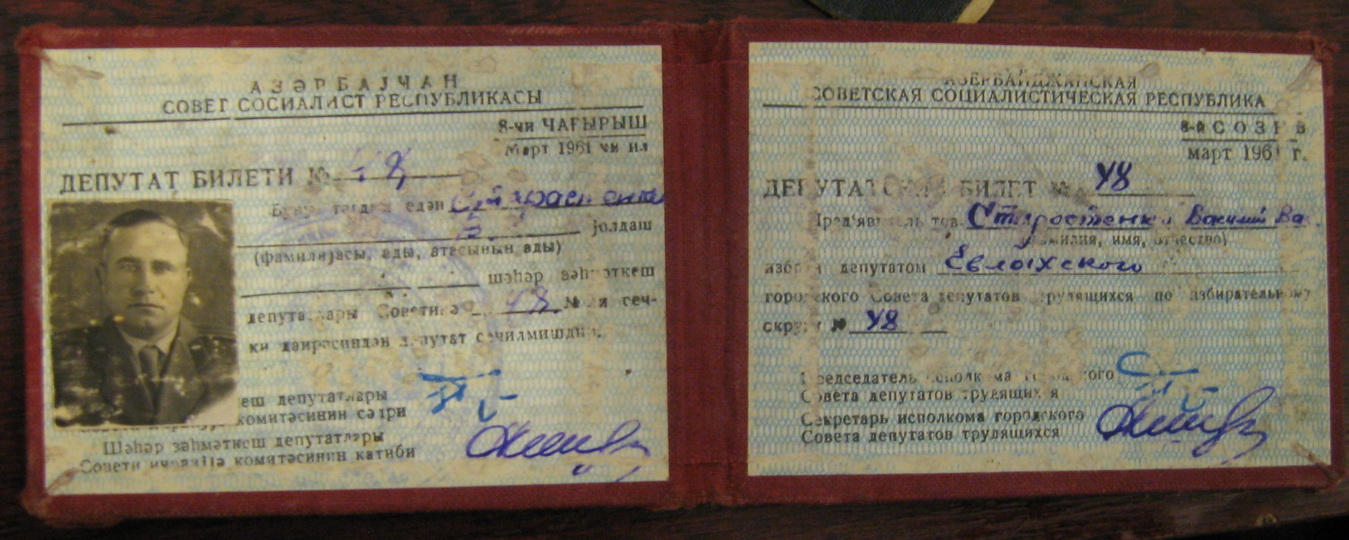 АЗӘРБАЈҸАН
СОВЕТ СОСИАЛИСТ РЕСПУБЛИКАСЫ
8-чи ЧАҒЫРЫШ
Март 1961-чи ил
ДЕПУТАТ БИЛЕТИ № 48
едән
јолдаш
(фамилијасы, ады, атасынын ады)
шәһәр зәһмәткеш
депутатлары Советинә 48 №-ли сеч-
ки даирәсиндән депутат сечилмишдир.
депутатлары
комитәсинин сәдри
Шәһәр зәһмәткеш депутатлары
Совети иҹраијјә комитәсинин катиби
АЗЕРБАЙДЖАНСКАЯ
СОВЕТСКАЯ СОЦИАЛИСТИЧЕСКАЯ РЕСПУБЛИКА
8-й СОЗЫВ
март 1961 г.
ДЕПУТАТСКИЙ БИЛЕТ № 48
Пред'явитель тов. Старостенко Василий Ва.
(фамилия, имя, отчество)
избран депутатом Евлахского
городского Совета депутатов трудящихся по избирательному
округу № 48
Председатель исполкома городского
Совета депутатов трудящихся
Секретарь исполкома городского
Совета депутатов трудящихся